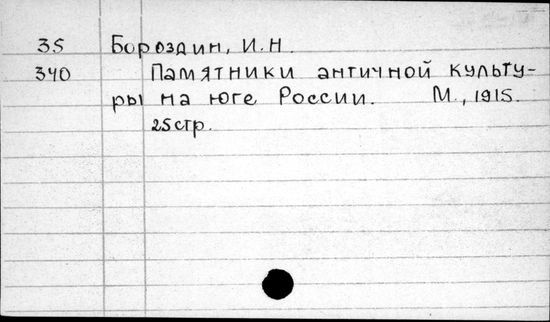 35 Бороздин, И.Н.
340 Памятники античной культу-
ры на юге России. М., 1915.
25стр.